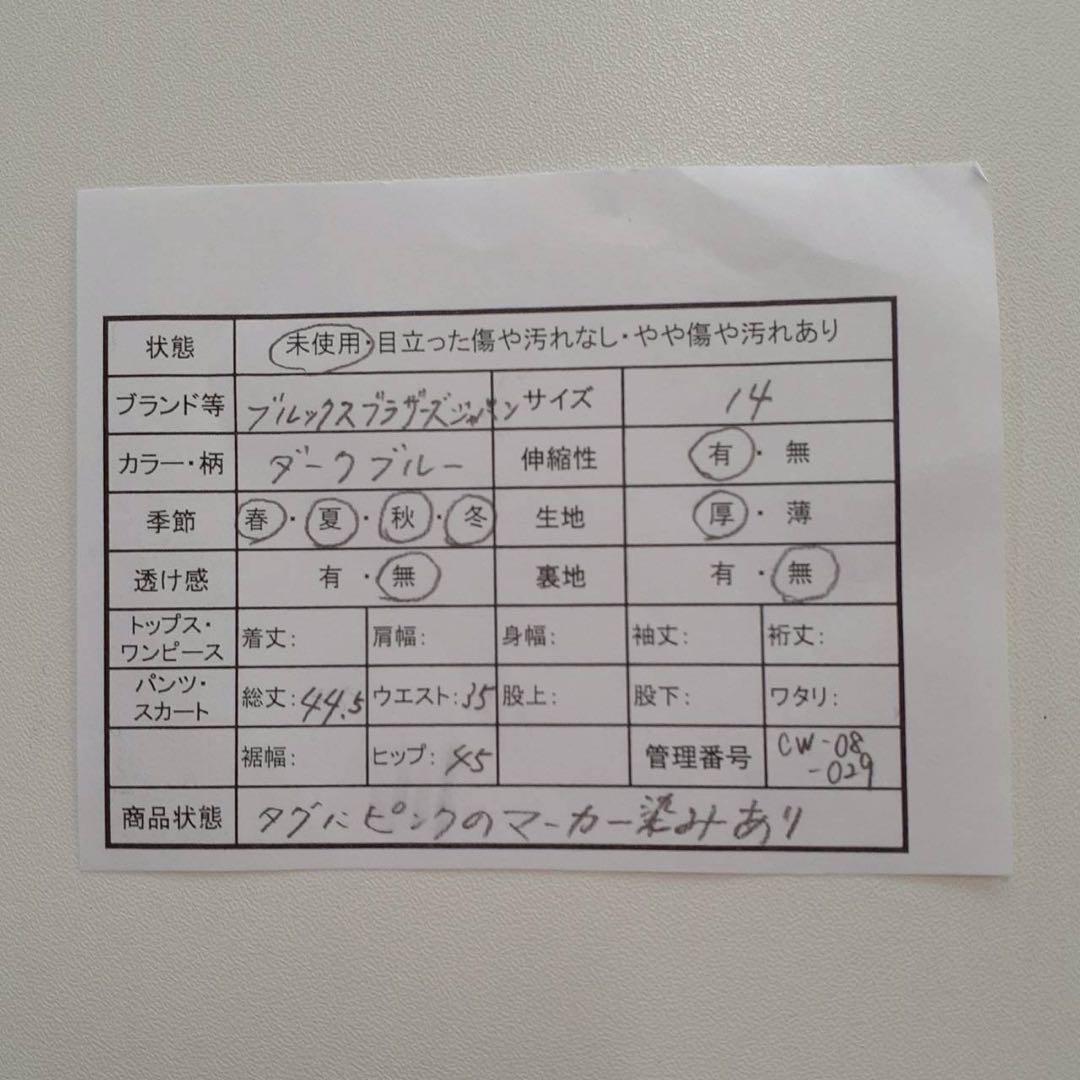 状態 未使用・目立った傷や汚れなし・やや傷や汚れあり
ブランド等 ブルックスブラザーズジャパン サイズ 14
カラー・柄 ダークブルー 伸縮性 有・無
季節 春・夏・秋・冬 生地 厚・薄
透け感 有・無 裏地 有・無
トップス・ワンピース 着丈: 肩幅: 身幅: 袖丈: 裄丈:
パンツ・スカート 総丈:44.5 ウエスト:35 股上: 股下: ワタリ:
裾幅: ヒップ:45 管理番号 CW-08-029
商品状態 タグにピンクのマーカー染みあり